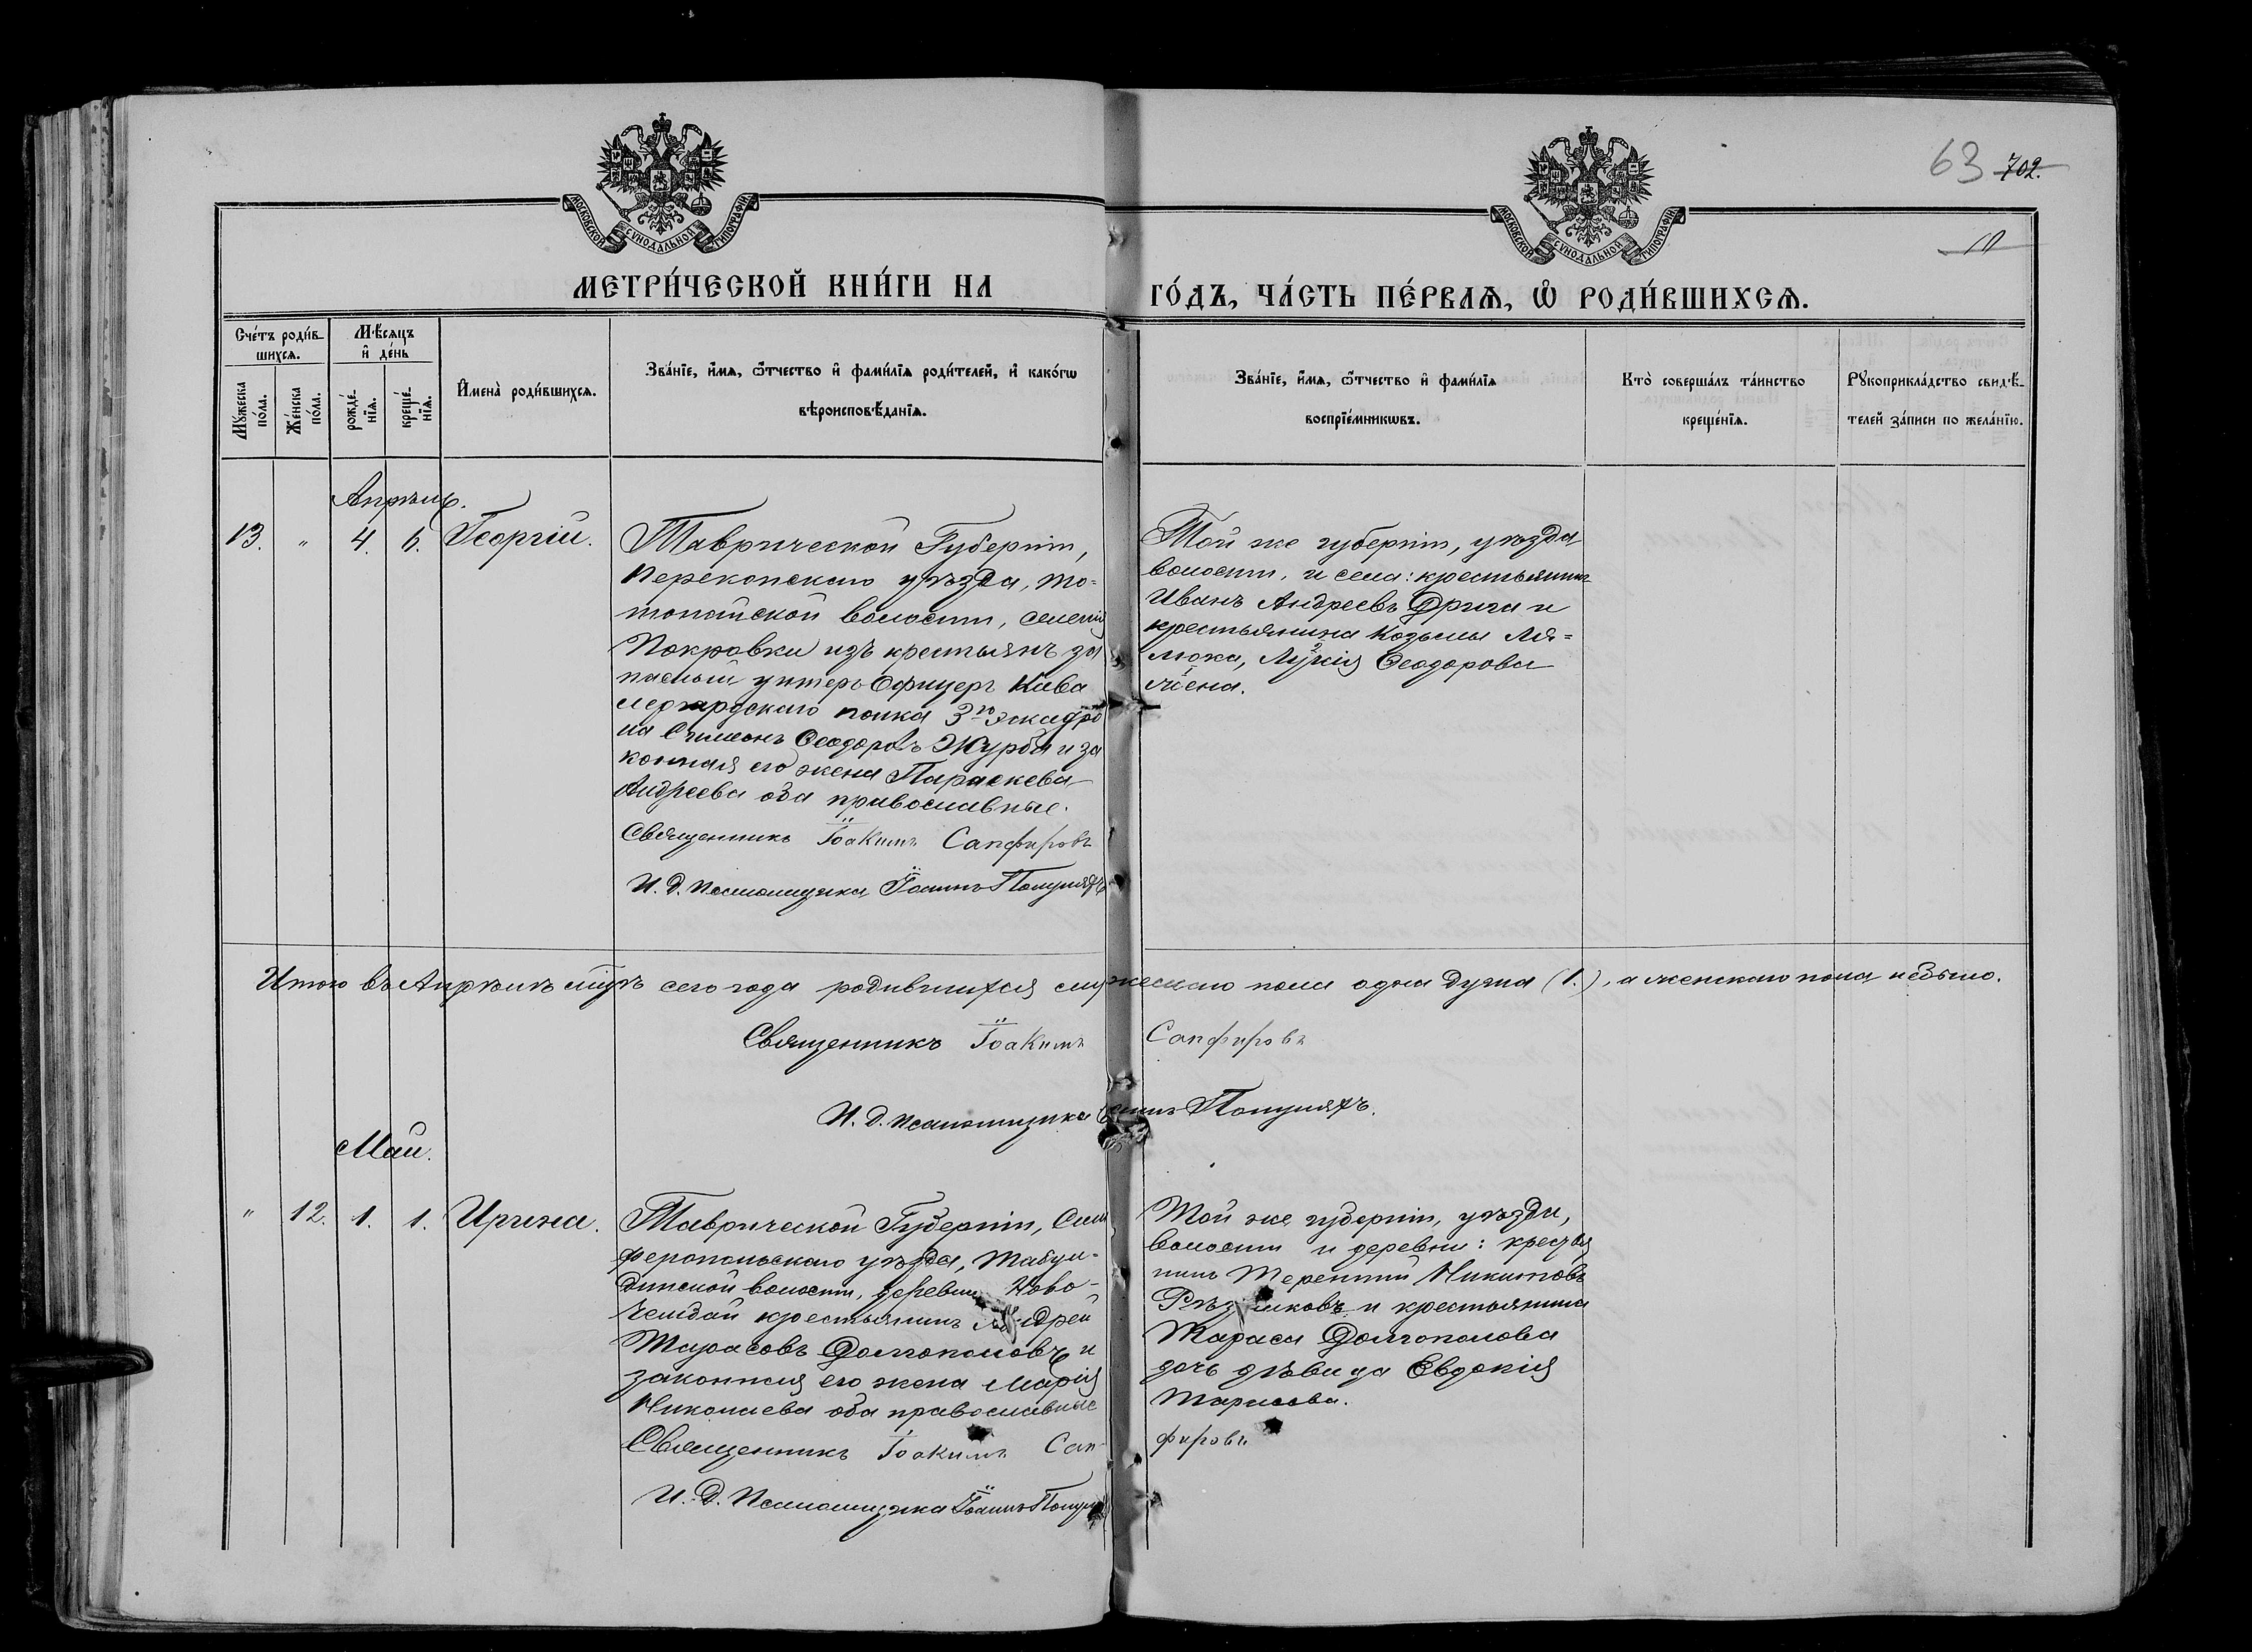 63 702.
11
МОСКОВСКОЙ СУНОДАЛЬНОЙ ТИПОГРАФІИ
МОСКОВСКОЙ СУНОДАЛЬНОЙ ТИПОГРАФІИ
МЕТРИ́ЧЕСКОЙ КНИ́ГИ НА ГО́ДЪ, ЧА́СТЬ ПЕ́РВАЯ, Ѡ҆ РОДИ́ВШИХСЯ.
Сче́тъ роди́в-
шихся.
Мѣ́сяцъ
и҆ де́нь
Мꙋ́жеска
по́ла.
Же́нска
по́ла.
рожде́-
нїя.
креще́-
нїя.
И҆мена̀ роди́вшихся.
Зва́нїе, и҆́мя, ѻ҆́тчество и҆ фами́лїя роди́телей, и҆ како́гѡ
вѣроисповѣ́данїя.
Зва́нїе, и҆́мя, ѻ҆́тчество и҆ фами́лїя
воспрїе́мникѡвъ.
Кто̀ соверша́лъ та́инство
креще́нїя.
Рꙋкоприкла́дство свидѣ́-
телей за́писи по жела́нїю.
Апрѣль.
13. " 4. 6. Георгій.
Таврической Губерніи,
Перекопскаго уѣзда, То-
тонайской волости, селенія
Покровки изъ крестьянъ за
пасный унтеръ-Офицеръ Кава
лергардскаго полка 3го эскадро
на Симеонъ Ѳеодоровъ Журба и за
конная его жена Параскева
Андреева оба православные.
Священникъ Іоакимъ Сапфировъ
И. д. псаломщика Іоаннъ
Той же губерніи, уѣзда
волости, и села: крестьянинъ
Иванъ Андреевъ Дрига и
крестьянина Козьмы Ля-
люка, Лукія Ѳеодорова
жена.
Итого въ Апрѣлѣ мѣсяцѣ сего года родившихся мужескаго пола одна душа (1.), а женскаго пола небыло.
Священникъ Іоакимъ Сапфировъ
И. д. псаломщика Іоаннъ
Май.
" 12. 1. 1. Ирина.
Таврической Губерніи, Сим
феропольскаго уѣзда, Табул-
динской волости, деревни Ново-
крестьянинъ Андрей
Тарасовъ Долгополовъ и
законная его жена Марія
Николаева оба православные
Священникъ Іоакимъ Сап-
фировъ
И. д. Псаломщика Іоаннъ
Той же губерніи, уѣзда,
волости и деревни: крестья
нинъ Терентій Никитовъ
и крестьянина
Тараса Долгополова
дочь дѣвица Евдокія
Тарасова.